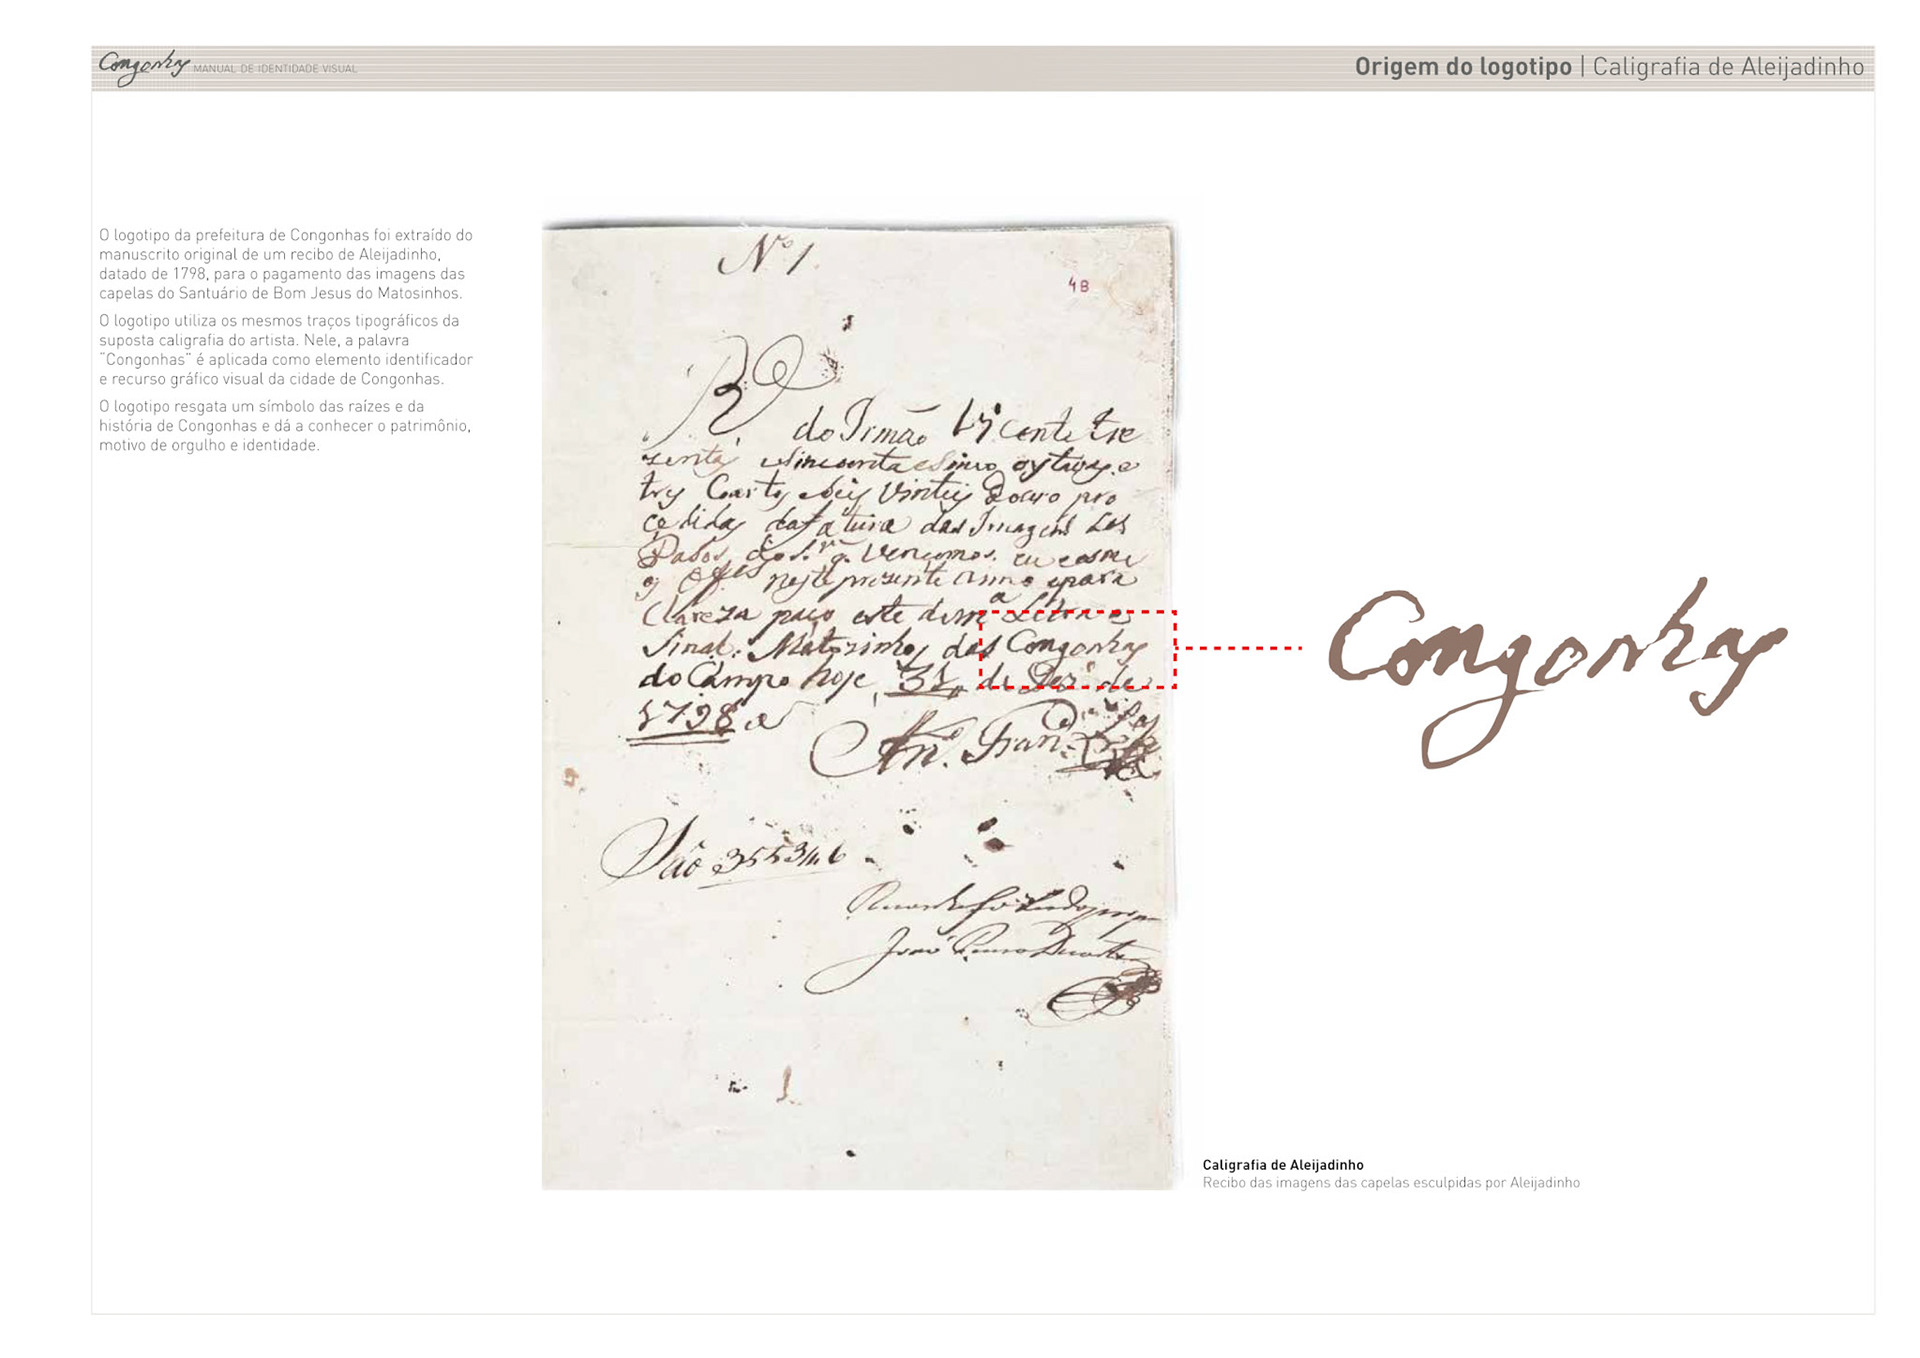 Congonhas MANUAL DE IDENTIDADE VISUAL
Origem do logotipo | Caligrafia de Aleijadinho
O logotipo da prefeitura de Congonhas foi extraído do
manuscrito original de um recibo de Aleijadinho,
datado de 1798, para o pagamento das imagens das
capelas do Santuário de Bom Jesus do Matosinhos.
O logotipo utiliza os mesmos traços tipográficos da
suposta caligrafia do artista. Nele, a palavra
"Congonhas" é aplicada como elemento identificador
e recurso gráfico visual da cidade de Congonhas.
O logotipo resgata um símbolo das raízes e da
história de Congonhas e dá a conhecer o patrimônio,
motivo de orgulho e identidade.
Nº 1
4B
do Irmão Vicente tre
zentas e sincoenta e sinco oytavas e
tres Coartos e seis Vinteis douro pro
cedidas da fatura das Imagens dos
Pasos do Sr. q. Vencemos eu e os me
neste presente anno e para
Clareza paço este de mª Letra e
sinal Matozinhos das Congonhas
do Campo hoje 31 de Dezº de
1798 a
Antº Francº Lisbª
São 355 3/4 6
Congonhas
Caligrafia de Aleijadinho
Recibo das imagens das capelas esculpidas por Aleijadinho